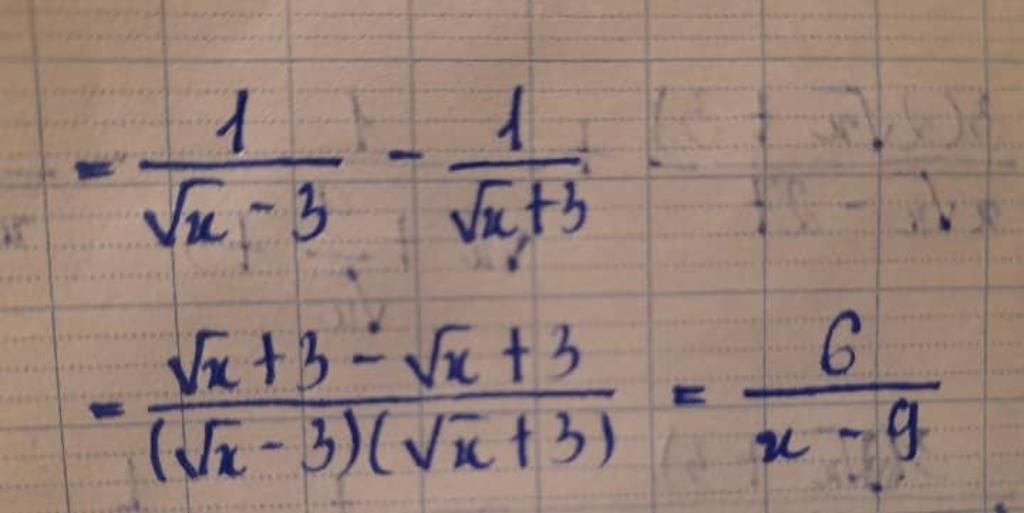 = 1/(√x - 3) - 1/(√x + 3)
= (√x + 3 - √x + 3)/((√x - 3)(√x + 3)) = 6/(x - 9)